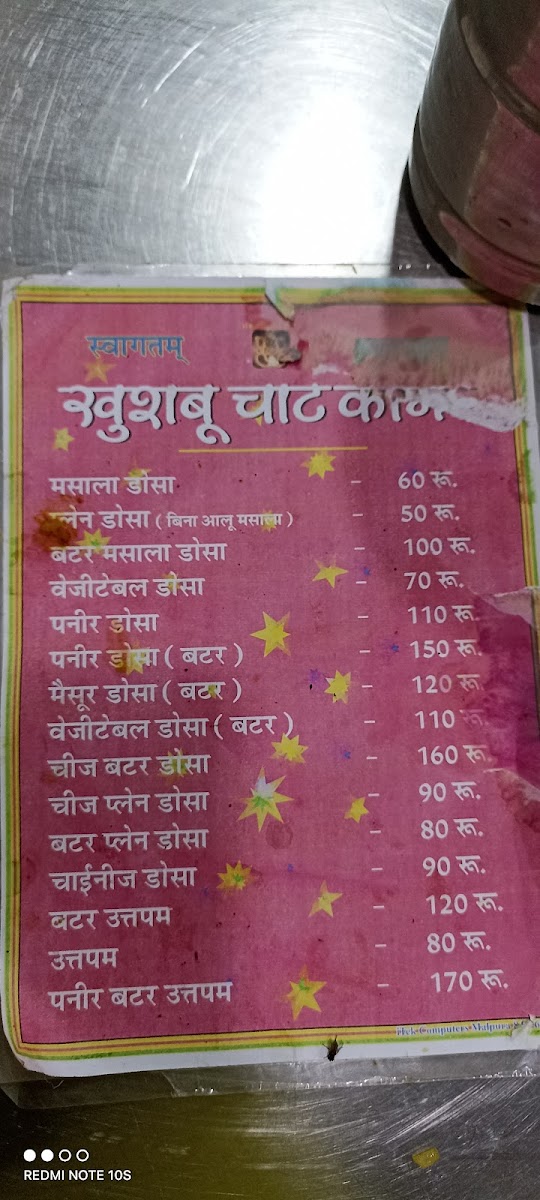 स्वागतम्
खुशबू चाट
मसाला डोसा - 60 रू.
प्लेन डोसा ( बिना आलू मसाला ) - 50 रू.
बटर मसाला डोसा - 100 रू.
वेजीटेबल डोसा - 70 रू.
पनीर डोसा - 110 रू.
पनीर डोसा ( बटर ) - 150 रू.
मैसूर डोसा ( बटर ) - 120 रू.
वेजीटेबल डोसा ( बटर ) - 110 रू.
चीज बटर डोसा - 160 रू.
चीज प्लेन डोसा - 90 रू.
बटर प्लेन डोसा - 80 रू.
चाईनीज डोसा - 90 रू.
बटर उत्तपम - 120 रू.
उत्तपम - 80 रू.
पनीर बटर उत्तपम - 170 रू.
Computers Malpura
REDMI NOTE 10S